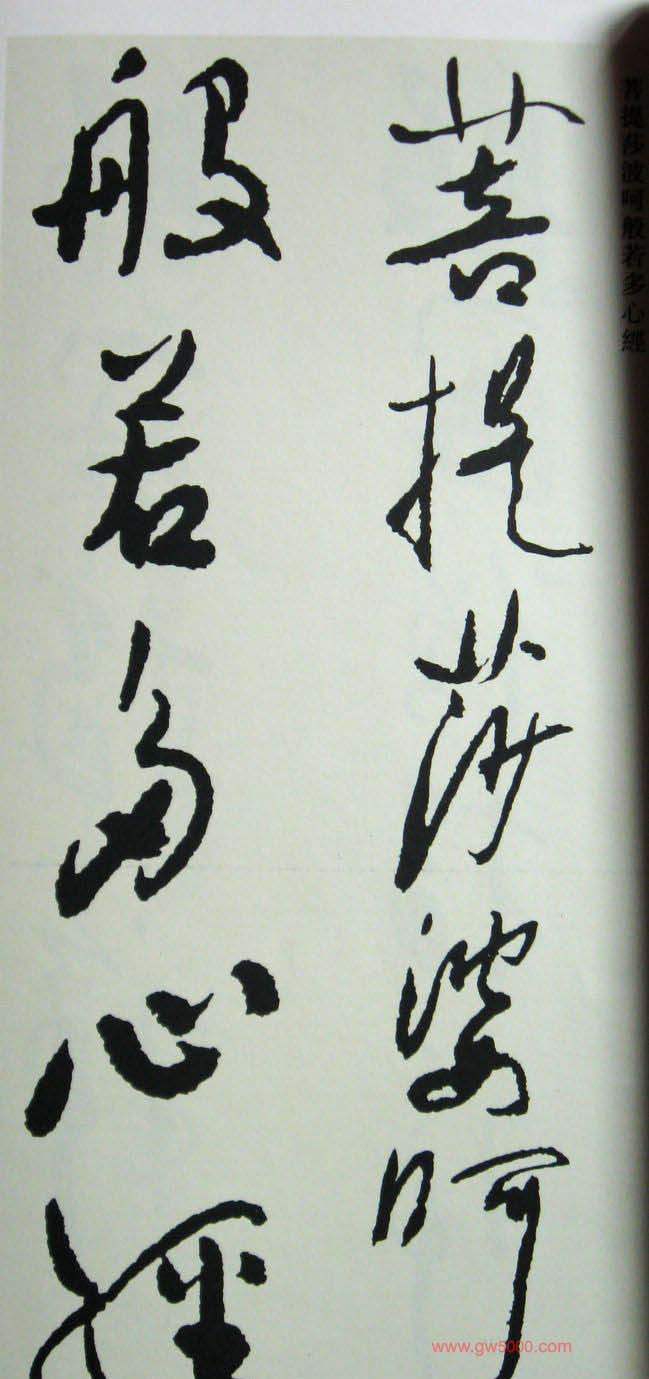 菩提莎婆呵
般若多心經
菩提莎波呵般若多心經
www.gw5000.com